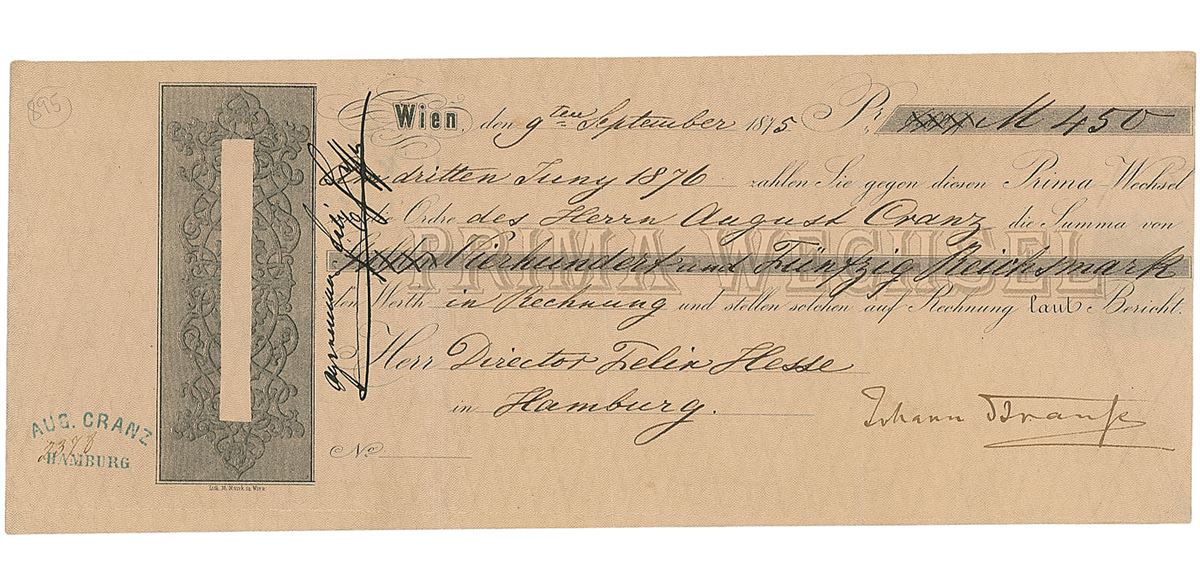 895
Wien, den 9ten September 1875 Pr. M 450
Am dritten Juny 1876 zahlen Sie gegen diesen Prima-Wechsel
die Ordre des Herrn August Cranz die Summa von
PRIMA-WECHSEL
Vierhundert und Fünfzig Reichsmark
den Werth in Rechnung und stellen solchen auf Rechnung laut Bericht.
Herr Director Felix Hesse
in Hamburg.
Johann Strauß
No.
AUG. CRANZ
2378
HAMBURG